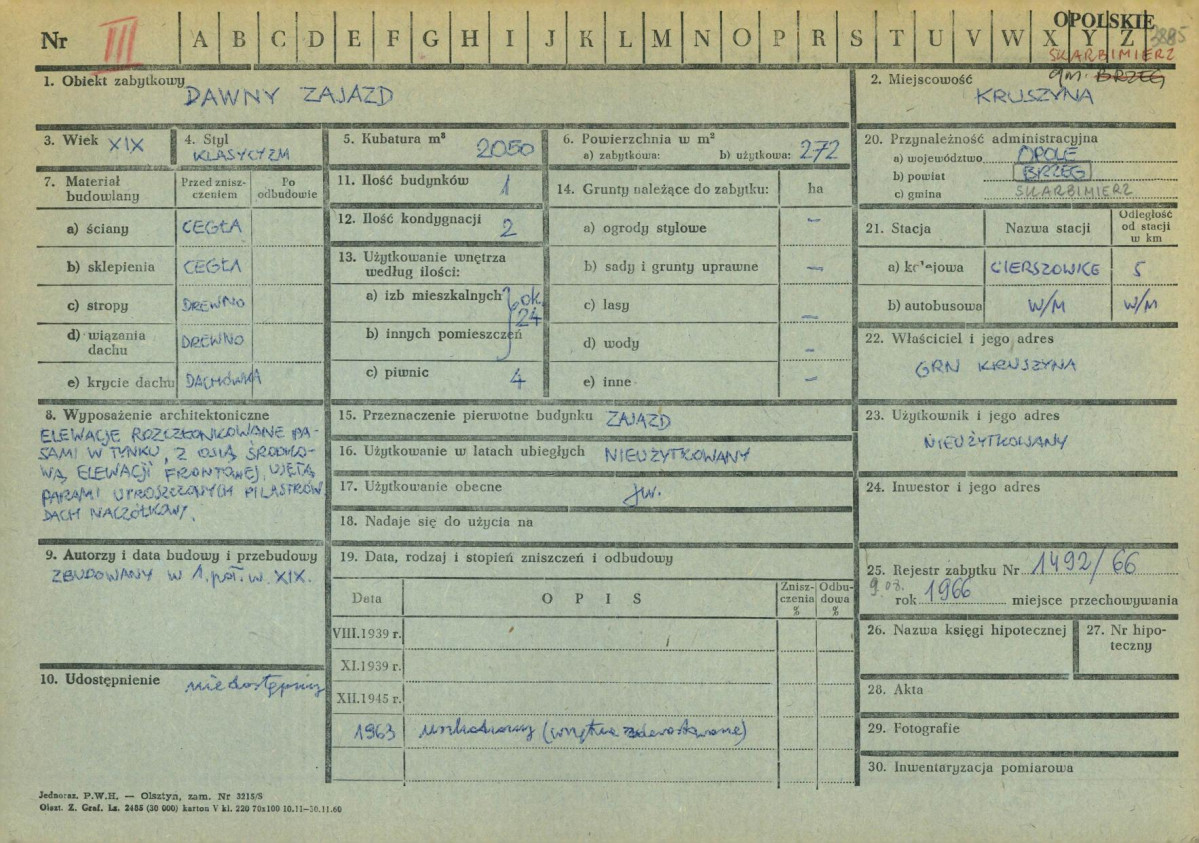 OPOLSKIE
Nr III A B C D E F G H I J K L M N O P R S T U V W X Y Z 3885
SKARBIMIERZ
1. Obiekt zabytkowy DAWNY ZAJAZD
2. Miejscowość gm. BRZEG
KRUSZYNA
3. Wiek XIX
4. Styl
KLASYCYZM
5. Kubatura m³ 2050
6. Powierzchnia w m²
a) zabytkowa: b) użytkowa: 272
20. Przynależność administracyjna
a) województwo OPOLE
b) powiat BRZEG
c) gmina SKARBIMIERZ
7. Materiał budowlany
Przed znisz-
czeniem
Po
odbudowie
a) ściany CEGŁA
b) sklepienia CEGŁA
c) stropy DREWNO
d) wiązania
dachu DREWNO
e) krycie dachu DACHÓWKA
11. Ilość budynków 1
12. Ilość kondygnacji 2
13. Użytkowanie wnętrza
według ilości:
a) izb mieszkalnych ok.
24
b) innych pomieszczeń
c) piwnic 4
14. Grunty należące do zabytku: ha
a) ogrody stylowe –
b) sady i grunty uprawne –
c) lasy –
d) wody –
e) inne –
21. Stacja
Nazwa stacji
Odległość
od stacji
w km
a) kolejowa CIERSZOWICE 5
b) autobusowa W/M W/M
22. Właściciel i jego adres
GRN KRUSZYNA
8. Wyposażenie architektoniczne
ELEWACJE ROZCZŁONKOWANE PA-
SAMI W TYNKU, Z OSIĄ ŚRODKO-
WĄ ELEWACJI FRONTOWEJ, UJĘTĄ
PARAMI UPROSZCZONYCH PILASTRÓW
DACH NACZÓŁKOWY.
15. Przeznaczenie pierwotne budynku ZAJAZD
16. Użytkowanie w latach ubiegłych NIEUŻYTKOWANY
17. Użytkowanie obecne jw.
18. Nadaje się do użycia na
23. Użytkownik i jego adres
NIEUŻYTKOWANY
24. Inwestor i jego adres
9. Autorzy i data budowy i przebudowy
ZBUDOWANY W 1. poł. w. XIX.
10. Udostępnienie niedostępny
19. Data, rodzaj i stopień zniszczeń i odbudowy
Data OPIS
Znisz-
czenia
%
Odbu-
dowa
%
VIII.1939 r.
XI.1939 r.
XII.1945 r.
1963 uszkodzony (wnętrze zdewastowane)
25. Rejestr zabytku Nr 1492/66
9.08. rok 1966 miejsce przechowywania
26. Nazwa księgi hipotecznej
27. Nr hipo-
teczny
28. Akta
29. Fotografie
30. Inwentaryzacja pomiarowa
Jednoraz. P.W.H. — Olsztyn, zam. Nr 3215/S
Olszt. Z. Graf. Lz. 2485 (30 000) karton V kl. 220 70x100 10.11—30.11.60